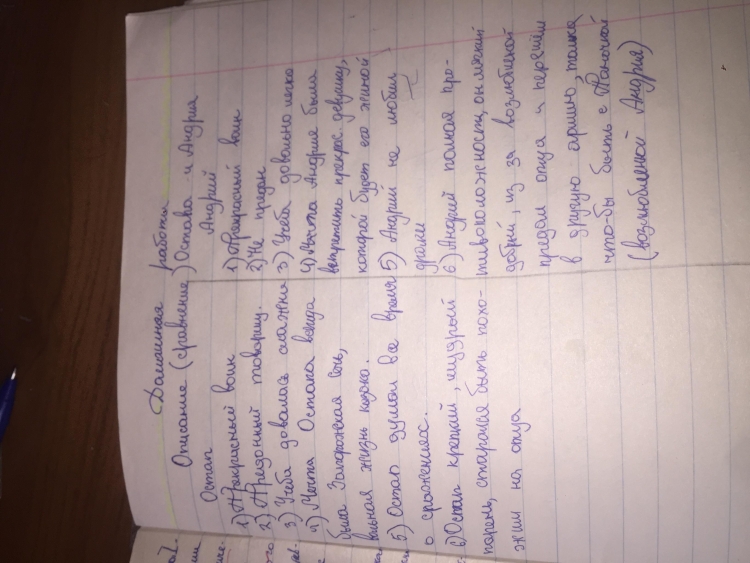 Домашняя работа
Описание (сравнение) Остапа и Андрия
Остап
1) Прекрасный воин
2) Преданный товарищу.
3) Учеба довалась сложней
4) Мечта Остапа всегда
была Запорожская Сечь,
вольная жизнь козока.
5) Остап думал все время
о сражениях.
6) Остап крепкий, мудрый
парень, старался быть похо-
жим на отца
Андрий
1) Прекрасный воин
2) Не предан
3) Учеба довольно легко
4) Мечта Андрия была
встретить прекрас. девушку,
которой будет его жиной
5) Андрий не любил
драки
6) Андрий полная про-
тивоположность, он мягкий
добрый, из за возлюбленой
предал отца и перешёл
в другую армию, только
что-бы быть с Паночкой
(возлюбленой Андрия)